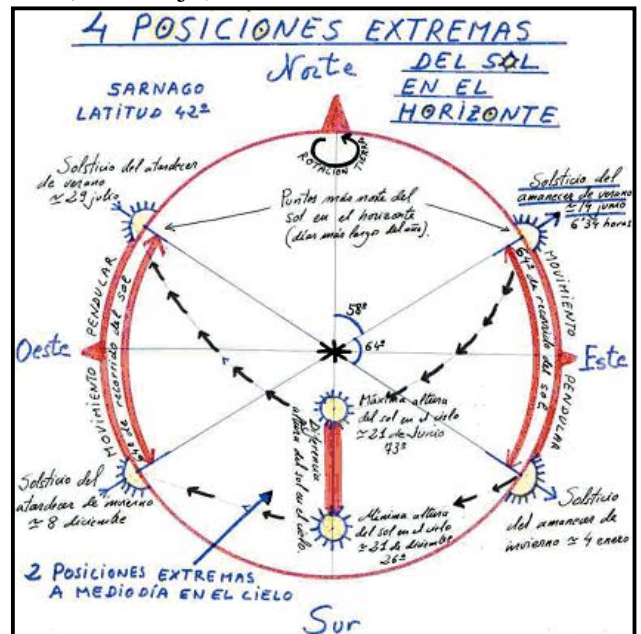 4 POSICIONES EXTREMAS
DEL SOL
EN EL
HORIZONTE
Norte
SARNAGO
LATITUD 42º
ROTACION TIERRA
Solsticio del atardecer
de verano
≃ 29 julio
Puntos más norte del
sol en el horizonte
(días más largos del año).
Solsticio del
amanecer de verano
≃ 14 junio
6'34 horas
MOVIMIENTO PENDULAR
de recorrido del sol
64º de recorrido del sol
MOVIMIENTO PENDULAR
58º
64º
Oeste
Este
Máxima altura
del sol en el cielo
≃ 21 de Junio
73º
Diferencia
altura del sol en el cielo
Mínima altura
del sol en el cielo
≃ 21 de diciembre
26º
Solsticio del
atardecer de invierno
≃ 8 diciembre
Solsticio
del amanecer de
invierno ≃ 4 enero
2 POSICIONES EXTREMAS
A MEDIODÍA EN EL CIELO
Sur